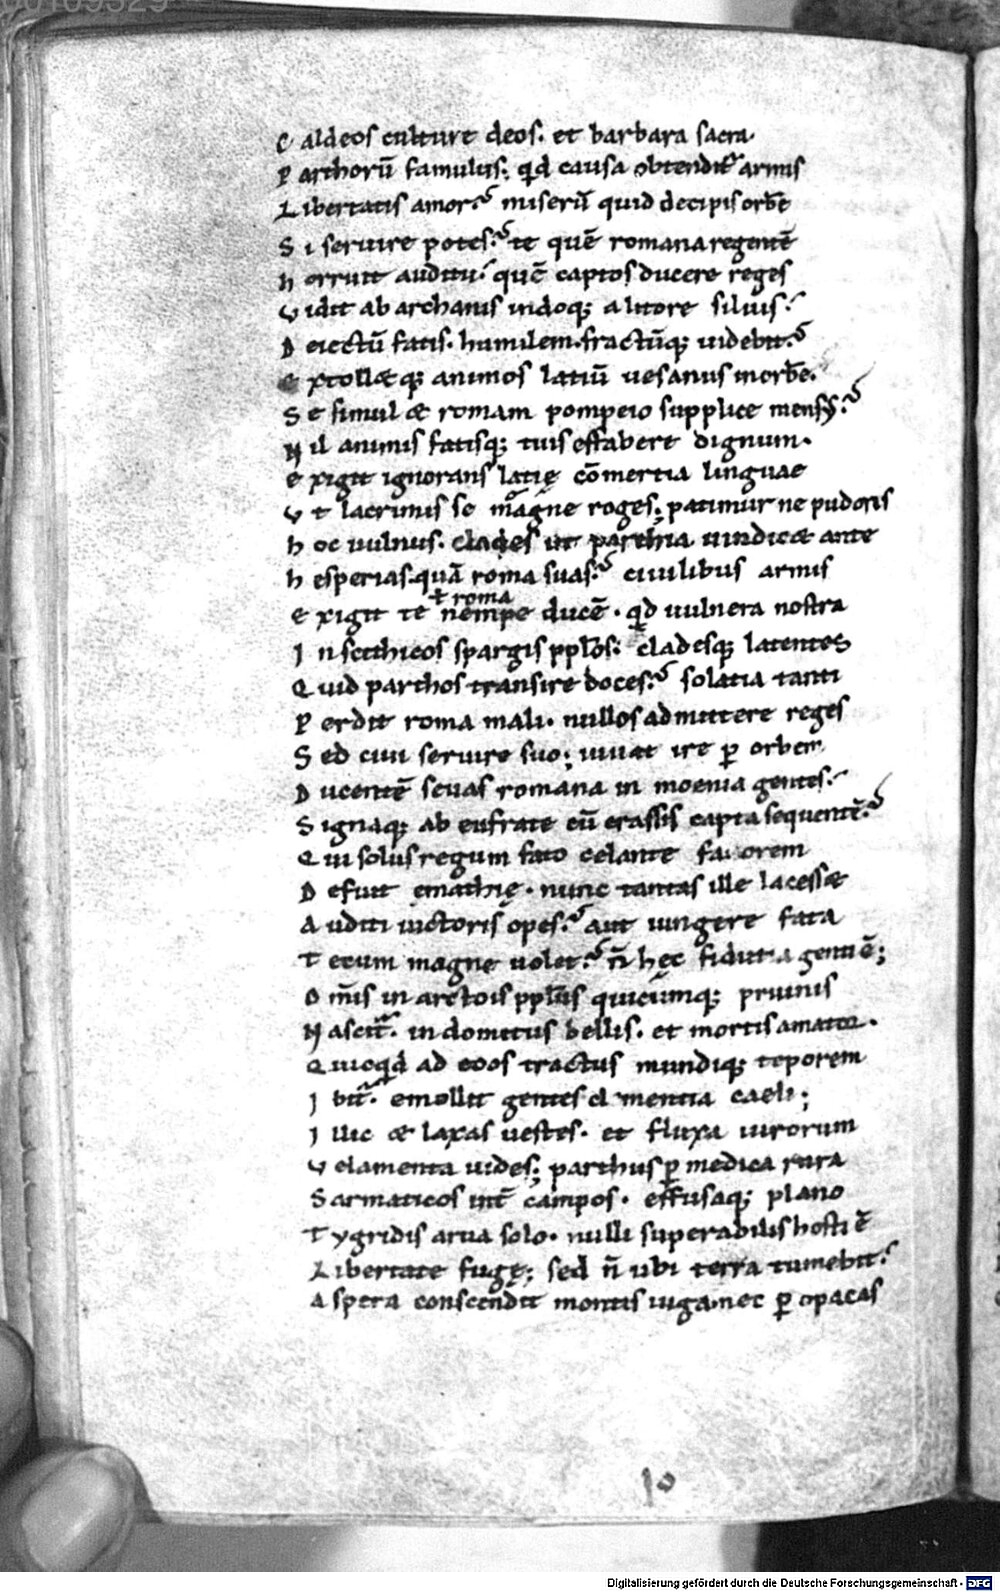 C aldeos culture deos. et barbara sacra.
P arthorū famulus; qd causa obtendit᷑ armis
L ibertatis amor? miserū quid decipis orbē
S i seruire potes? te quē romana regentē
h orruit auditu. quē captos ducere reges
v idit ab archanis indoq; a litore siluis.
D eiectū fatis. humilem. fractūq; uidebit?
E xtollæq; animos latiū uesanus in orbē.
S e simul æ romam pompeio supplice mensus?
N il animis fatisq; tuis effabere dignum.
e xigit ignorans latię cōmertia linguae
v t lacrimis se magne roges; patimur ne pudoris
h oc uulnus. clades ut parthia uindicæ ante
h esperias. quā roma suas? ciuilibus armis
ł roma
e xigit te nempe ducē. qd uulnera nostra
I n scithicos spargis ppłos. cladesq; latentes
Q uid parthos transire doces? solatia tanti
P erdit roma mali. nullos admittere reges
S ed ciui seruire suo; iuuat ire p orbem
D ucentē seuas romana in moenia gentes.
S ignaq; ab eufrate cū crassis capta sequentē?
Q ui solus regum fato celante fauorem
D efuit emathię. nunc tantas ille lacessæ
A uditi uictoris opes? aut iungere fata
T ecum magne uolet? n̄ hęc fiducia genti ē;
O m̄is in arctois pplis quicumq; pruinis
N ascit᷑. indomitus bellis. et mortis amator.
Q uicqd ad eoos tractus mundiq; teporem
I bit᷑. emollit gentes clementia caeli;
I llic æ laxas uestes. et fluxa uirorum
v elamenta uides; parthus p medica rura
S armaticos int̄ campos. effusaq; plano
T ygridis arua solo. nulli superabilis hosti ē
L ibertate fugę; sed n̄ ubi terra tumebit.
A spera conscendit montis iuga. nec p opacas
10
Digitalisierung gefördert durch die Deutsche Forschungsgemeinschaft - DFG